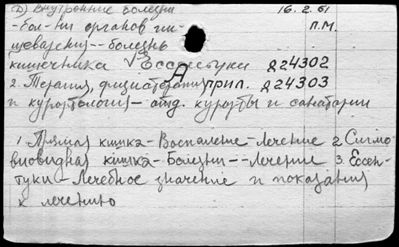 б) Внутренние болезни 16.2.61
- Бол-ни органов пи- П.М.
щеварения -- болезнь
кишечника √ Ессентуки д24302
2. Терапия, физиотерапия прил. д24303
и курортология - отд. курорты и санатории
1. Прямая кишка - Воспаление - Лечение 2. Сигмо
виовидная кишка - Болезни -- Лечение 3. Ессен-
туки - Лечебное значение и показания
к лечению